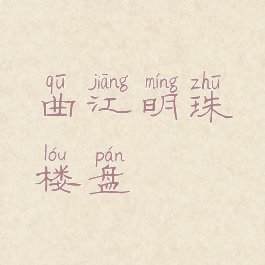 qū jiāng míng zhū
曲江明珠
lóu pán
楼盘